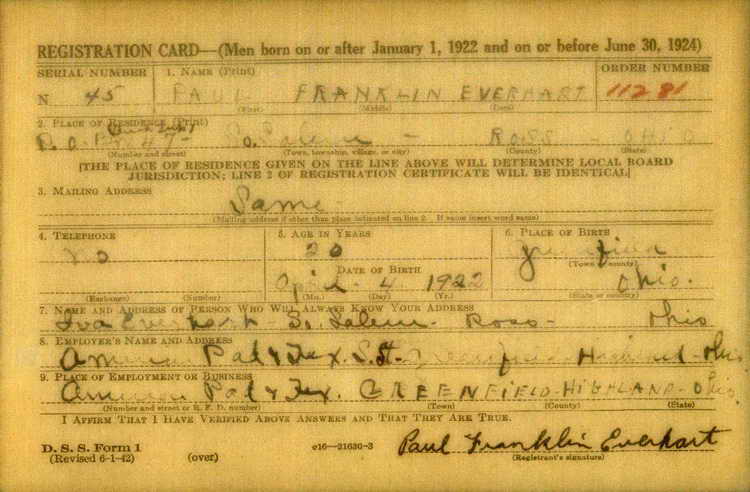 REGISTRATION CARD—(Men born on or after January 1, 1922 and on or before June 30, 1924)
SERIAL NUMBER 1. NAME (Print) ORDER NUMBER
N 45 PAUL FRANKLIN EVERHART 11281
(First) (Middle) (Last)
2. PLACE OF RESIDENCE (Print)
P.O. So. Salem - Ross - OHIO
(Number and street) (Town, township, village, or city) (County) (State)
[THE PLACE OF RESIDENCE GIVEN ON THE LINE ABOVE WILL DETERMINE LOCAL BOARD
JURISDICTION; LINE 2 OF REGISTRATION CERTIFICATE WILL BE IDENTICAL]
3. MAILING ADDRESS
Same
(Mailing address if other than place indicated on line 2. If same insert word same)
4. TELEPHONE 5. AGE IN YEARS 6. PLACE OF BIRTH
no 20 Greenfield
DATE OF BIRTH (Town or county)
April - 4 - 1922 Ohio.
(Exchange) (Number) (Mo.) (Day) (Yr.) (State or country)
7. NAME AND ADDRESS OF PERSON WHO WILL ALWAYS KNOW YOUR ADDRESS
Iva Everhart - So. Salem - Ross - Ohio
8. EMPLOYER'S NAME AND ADDRESS
American Pad & Tex. Greenfield - Highland - Ohio.
9. PLACE OF EMPLOYMENT OR BUSINESS
American Pad & Tex. GREENFIELD - HIGHLAND - Ohio.
(Number and street or R. F. D. number) (Town) (County) (State)
I AFFIRM THAT I HAVE VERIFIED ABOVE ANSWERS AND THAT THEY ARE TRUE.
D. S. S. Form 1
(Revised 6-1-42) (over) e16—21630-3 Paul Franklin Everhart
(Registrant's signature)